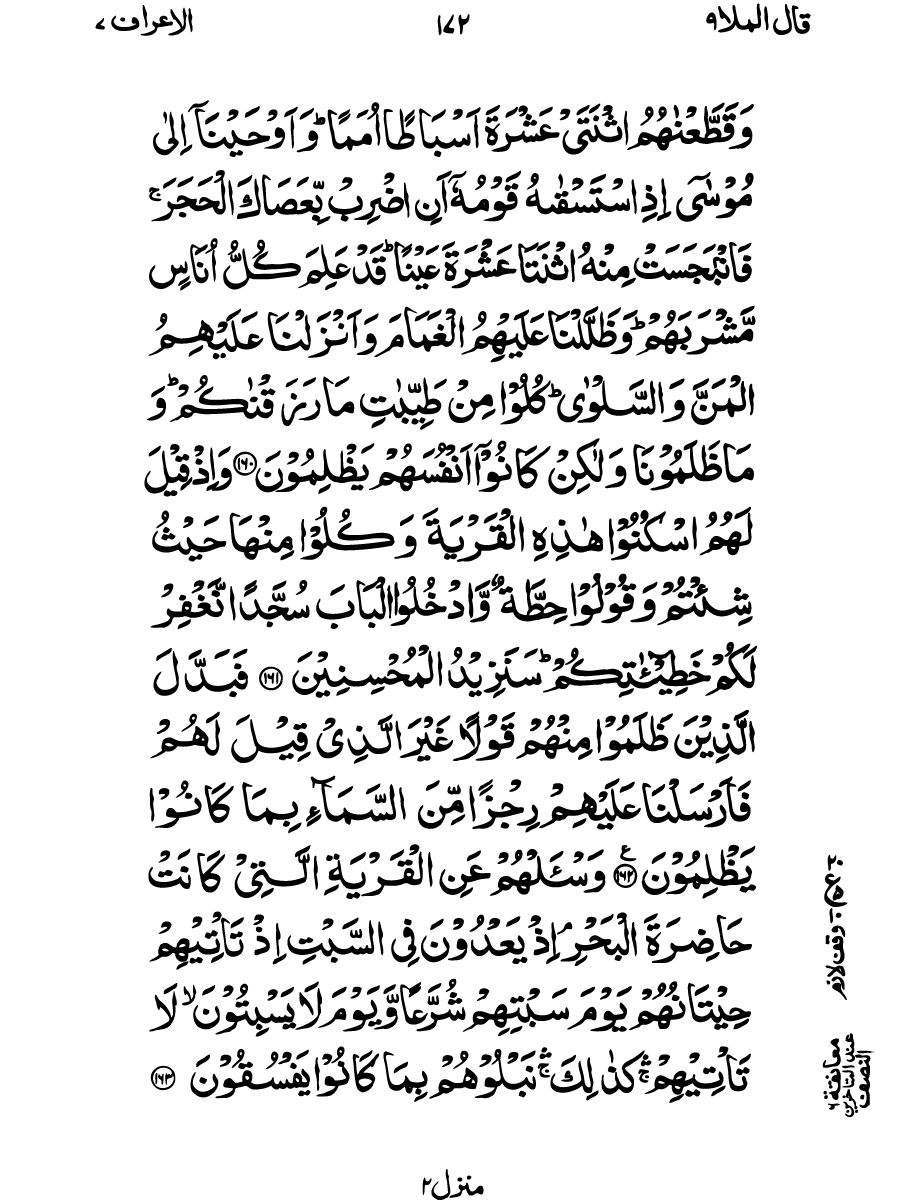 قال الملا۹ ۱۷۲ الاعراف ۷
وَقَطَّعْنٰهُمُ اثْنَتَيْ عَشْرَةَ اَسْبَاطًا اُمَمًا ؕ وَ اَوْحَيْنَاۤ اِلٰى
مُوْسٰۤى اِذِ اسْتَسْقٰىهُ قَوْمُهٗۤ اَنِ اضْرِبْ بِّعَصَاكَ الْحَجَرَ ۚ
فَانْۢبَجَسَتْ مِنْهُ اثْنَتَا عَشْرَةَ عَيْنًا ؕ قَدْ عَلِمَ كُلُّ اُنَاسٍ
مَّشْرَبَهُمْ ؕ وَظَلَّلْنَا عَلَيْهِمُ الْغَمَامَ وَ اَنْزَلْنَا عَلَيْهِمُ
الْمَنَّ وَ السَّلْوٰى ؕ كُلُوْا مِنْ طَيِّبٰتِ مَا رَزَقْنٰكُمْ ؕ وَ
مَا ظَلَمُوْنَا وَلٰكِنْ كَانُوْۤا اَنْفُسَهُمْ يَظْلِمُوْنَ ۝۱۶۰ وَ اِذْ قِيْلَ
لَهُمُ اسْكُنُوْا هٰذِهِ الْقَرْيَةَ وَ كُلُوْا مِنْهَا حَيْثُ
شِئْتُمْ وَ قُوْلُوْا حِطَّةٌ وَّ ادْخُلُوا الْبَابَ سُجَّدًا نَّغْفِرْ
لَكُمْ خَطِيْٓـٰٔتِكُمْ ؕ سَنَزِيْدُ الْمُحْسِنِيْنَ ۝۱۶۱ فَبَدَّلَ
الَّذِيْنَ ظَلَمُوْا مِنْهُمْ قَوْلًا غَيْرَ الَّذِيْ قِيْلَ لَهُمْ
فَاَرْسَلْنَا عَلَيْهِمْ رِجْزًا مِّنَ السَّمَآءِ بِمَا كَانُوْا
يَظْلِمُوْنَ ۝۱۶۲ ع وَسْـَٔلْهُمْ عَنِ الْقَرْيَةِ الَّتِيْ كَانَتْ
حَاضِرَةَ الْبَحْرِ ۘ اِذْ يَعْدُوْنَ فِي السَّبْتِ اِذْ تَاْتِيْهِمْ
حِيْتَانُهُمْ يَوْمَ سَبْتِهِمْ شُرَّعًا وَّ يَوْمَ لَا يَسْبِتُوْنَ ۙ لَا
تَاْتِيْهِمْ ۛۚ كَذٰلِكَ ۛۚ نَبْلُوْهُمْ بِمَا كَانُوْا يَفْسُقُوْنَ ۝۱۶۳
وقف لازم
معانقة ۶
عند المتاخرين
النصف
منزل ۲